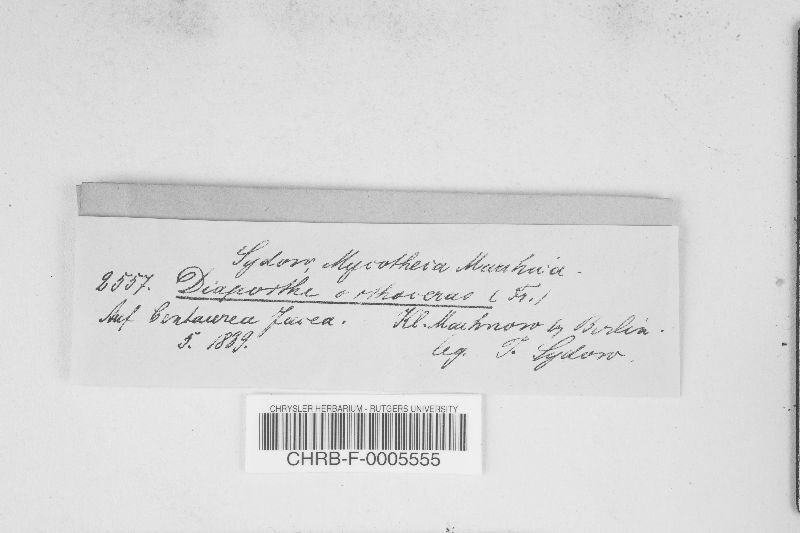 Sydow, Mycotheca Marchica.
2557. Diaporthe orthoceras (Fr.)
Auf Centaurea Jacea. Kl. Machnow by Berlin.
5. 1889. leg. P. Sydow.
CHRYSLER HERBARIUM - RUTGERS UNIVERSITY
CHRB-F-0005555